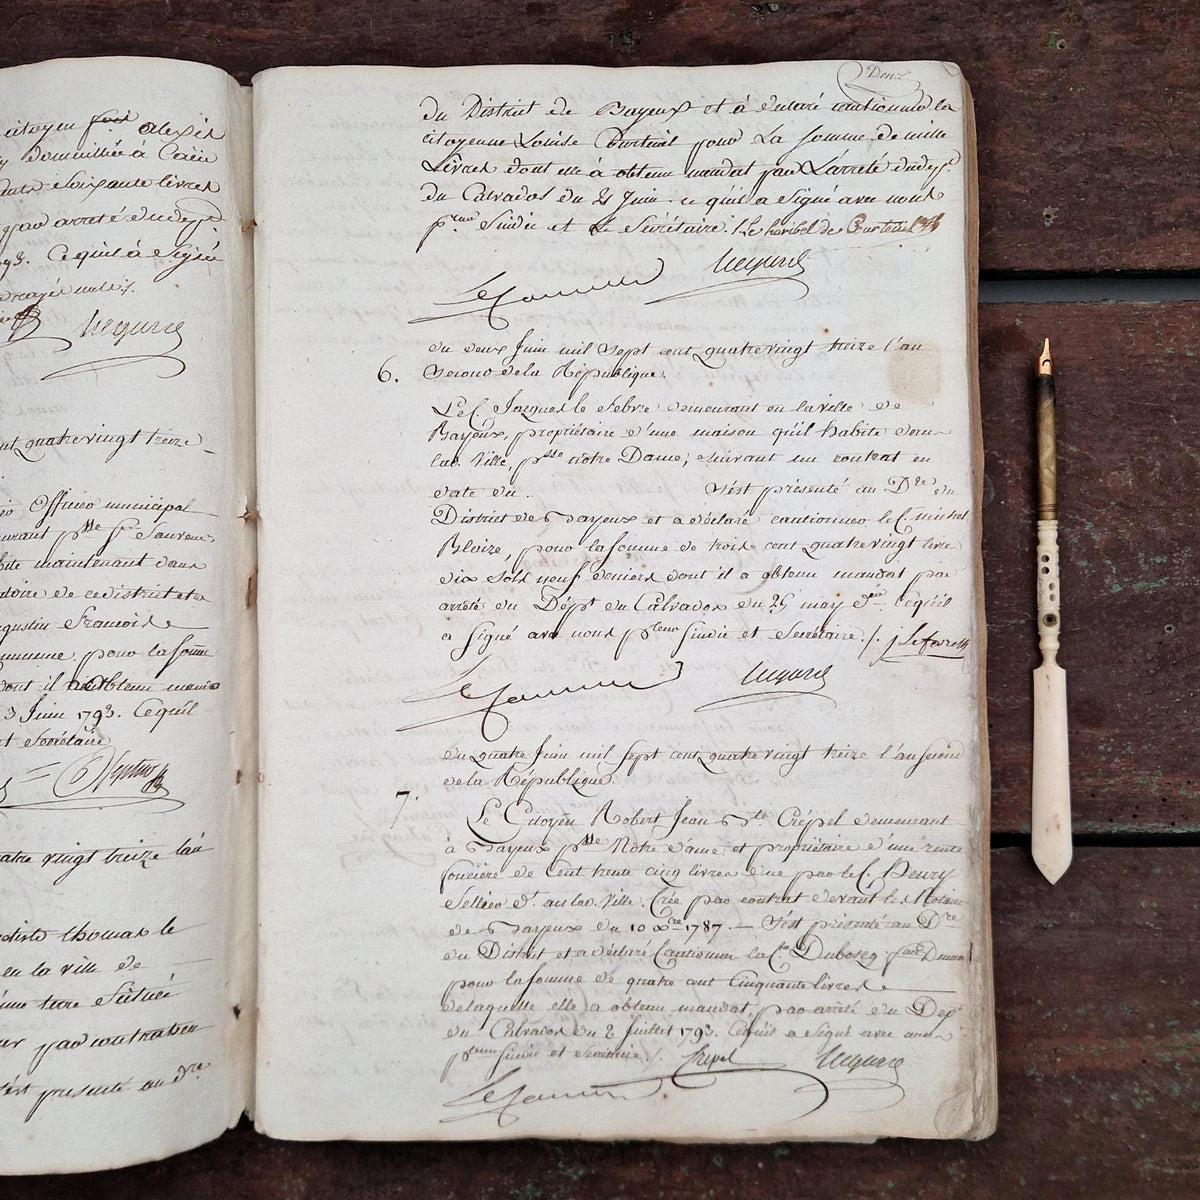 citoyen alexis
Domiciliée à Caën
soixante livres
par arreté du dep.t
93. Ce quil à Signé
rayé nuls ./.
hequard
quatre vingt treize
Officier municipal
p.sse S.t Sauveur
maintenant dans
de ce district et a
augustin francois
pour la somme
dont il a obtenu
3 Juin 1793. Ce quil
et Secrétaire
quatre vingt treize l'an
thomas le
en la ville de
une terre Située
par contrat
s'est presenté au d.re
Deux
du District de Bayeux et à déclaré cautionner la
citoyenne Louise Courteuil pour La somme de mille
Livres dont elle à obtenu mandat par L'arreté du dep.t
du Calvados du Juin. ce quil a Signé avec nous
p.reur Sindic et Le Secrétaire ./. Le haribel de Courteuil
hequard
6.
du deux Juin mil Sept cent quatrevingt treize l'an
Second de la République.
Le C. Jacques le febvre demeurant en la Ville de
Bayeux, propriétaire d'une maison qu'il habite dans
lad. Ville, p.sse Notre Dame, suivant un contrat en
date du . s'est présenté au D.re du
District de Bayeux et a déclaré cautionner le C. michel
Blaize, pour la somme de trois cent quatrevingt livres
dix Sols neuf deniers dont il a obtenu mandat par
arrété du Dép.t du Calvados du 25 may d.er Ce quil
a Signé avec nous p.reur Sindic et Secrétaire ./. j Lefevre
hequard
7.
du quatre Juin mil Sept cent quatrevingt treize l'an Second
de la République.
Le Citoyen Robert Jean B.te Crépel demeurant
à Bayeux p.sse Notre dame et propriétaire d'une rente
foncière de Cent trente cinq livres due par le C. Henry
Sellier d.t en lad. Ville. Crée par contrat devant les Notaires
de Bayeux du 10 x.bre 1787. — S'est présenté au D.re
du District et a déclaré Cautionner la C.ne Dubosq
pour la somme de quatre cent Cinquante livres
de laquelle elle a obtenu mandat, par arrété du Dep.t
du Calvados du 2 Juillet 1793. Ce quil a Signé avec nous
p.reur Sindic et Secrétaire ./. Crepel hequard